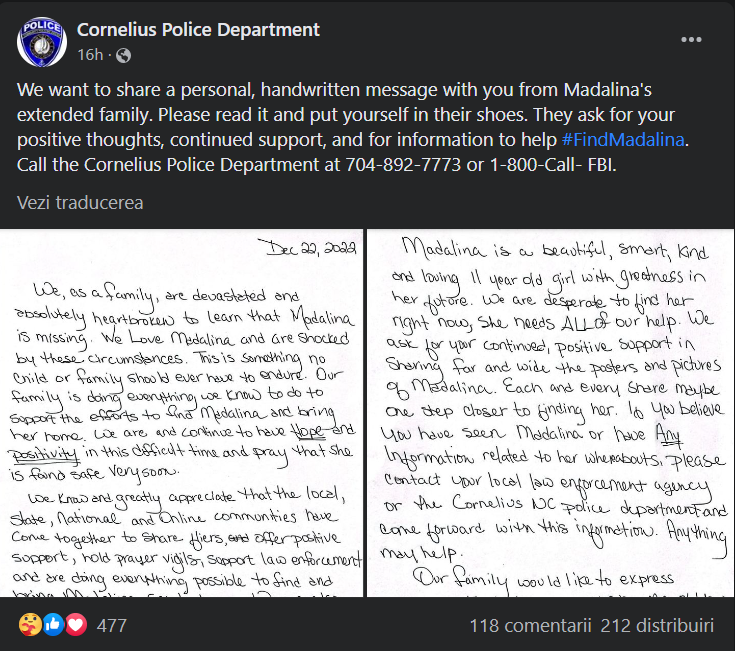 POLICE
Cornelius Police Department
16h ·
We want to share a personal, handwritten message with you from Madalina's
extended family. Please read it and put yourself in their shoes. They ask for your
positive thoughts, continued support, and for information to help #FindMadalina.
Call the Cornelius Police Department at 704-892-7773 or 1-800-Call- FBI.
Vezi traducerea
Dec 22, 2022
We, as a family, are devastated and
absolutely heartbroken to learn that Madalina
is missing. We Love Madalina and are shocked
by these circumstances. This is something no
child or family should ever have to endure. Our
family is doing everything we know to do to
support the efforts to find Madalina and bring
her home. We are and continue to have Hope and
positivity in this difficult time and pray that she
is found safe very soon.
We know and greatly appreciate that the local,
State, National and Online communities have
come together to share fliers, and offer positive
support, hold prayer vigils, support law enforcement
and are doing everything possible to find and
Madalina is a beautiful, smart, kind
and loving 11 year old girl with greatness in
her future. We are desperate to find her
right now, she needs ALL of our help. We
ask for your continued, positive support in
sharing far and wide the posters and pictures
of Madalina. Each and every share maybe
one step closer to finding her. If you believe
you have seen Madalina or have Any
information related to her whereabouts, please
contact your local law enforcement agency
or the Cornelius NC police department and
come forward with this information. Anything
may help.
Our family would like to express
477
118 comentarii 212 distribuiri